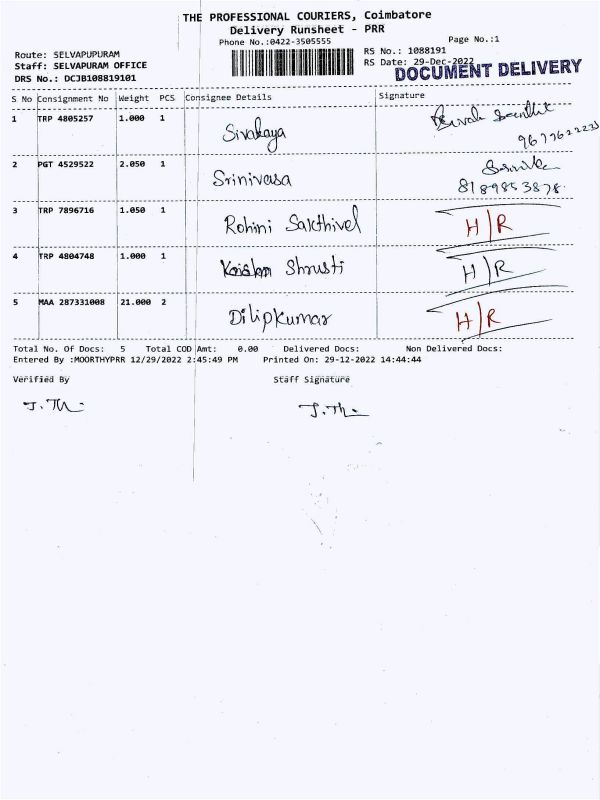 THE PROFESSIONAL COURIERS, Coimbatore
Delivery Runsheet - PRR
Phone No.:0422-3505555
Page No.:1
Route: SELVAPUPURAM
RS No.: 1088191
Staff: SELVAPURAM OFFICE
RS Date: 29-Dec-2022
DRS No.: DCJB108819101
DOCUMENT DELIVERY
S No Consignment No Weight PCS Consignee Details Signature
1 TRP 4805257 1.000 1 Sivakaya
2 PGT 4529522 2.050 1 Srinivasa
8189853878
3 TRP 7896716 1.050 1 Rohini Sakthivel H|R
4 TRP 4804748 1.000 1 Shrusti H|R
5 MAA 287331008 21.000 2 Dilipkumar H|R
Total No. Of Docs: 5 Total COD Amt: 0.00 Delivered Docs: Non Delivered Docs:
Entered By :MOORTHYPRR 12/29/2022 2:45:49 PM Printed On: 29-12-2022 14:44:44
Verified By Staff Signature